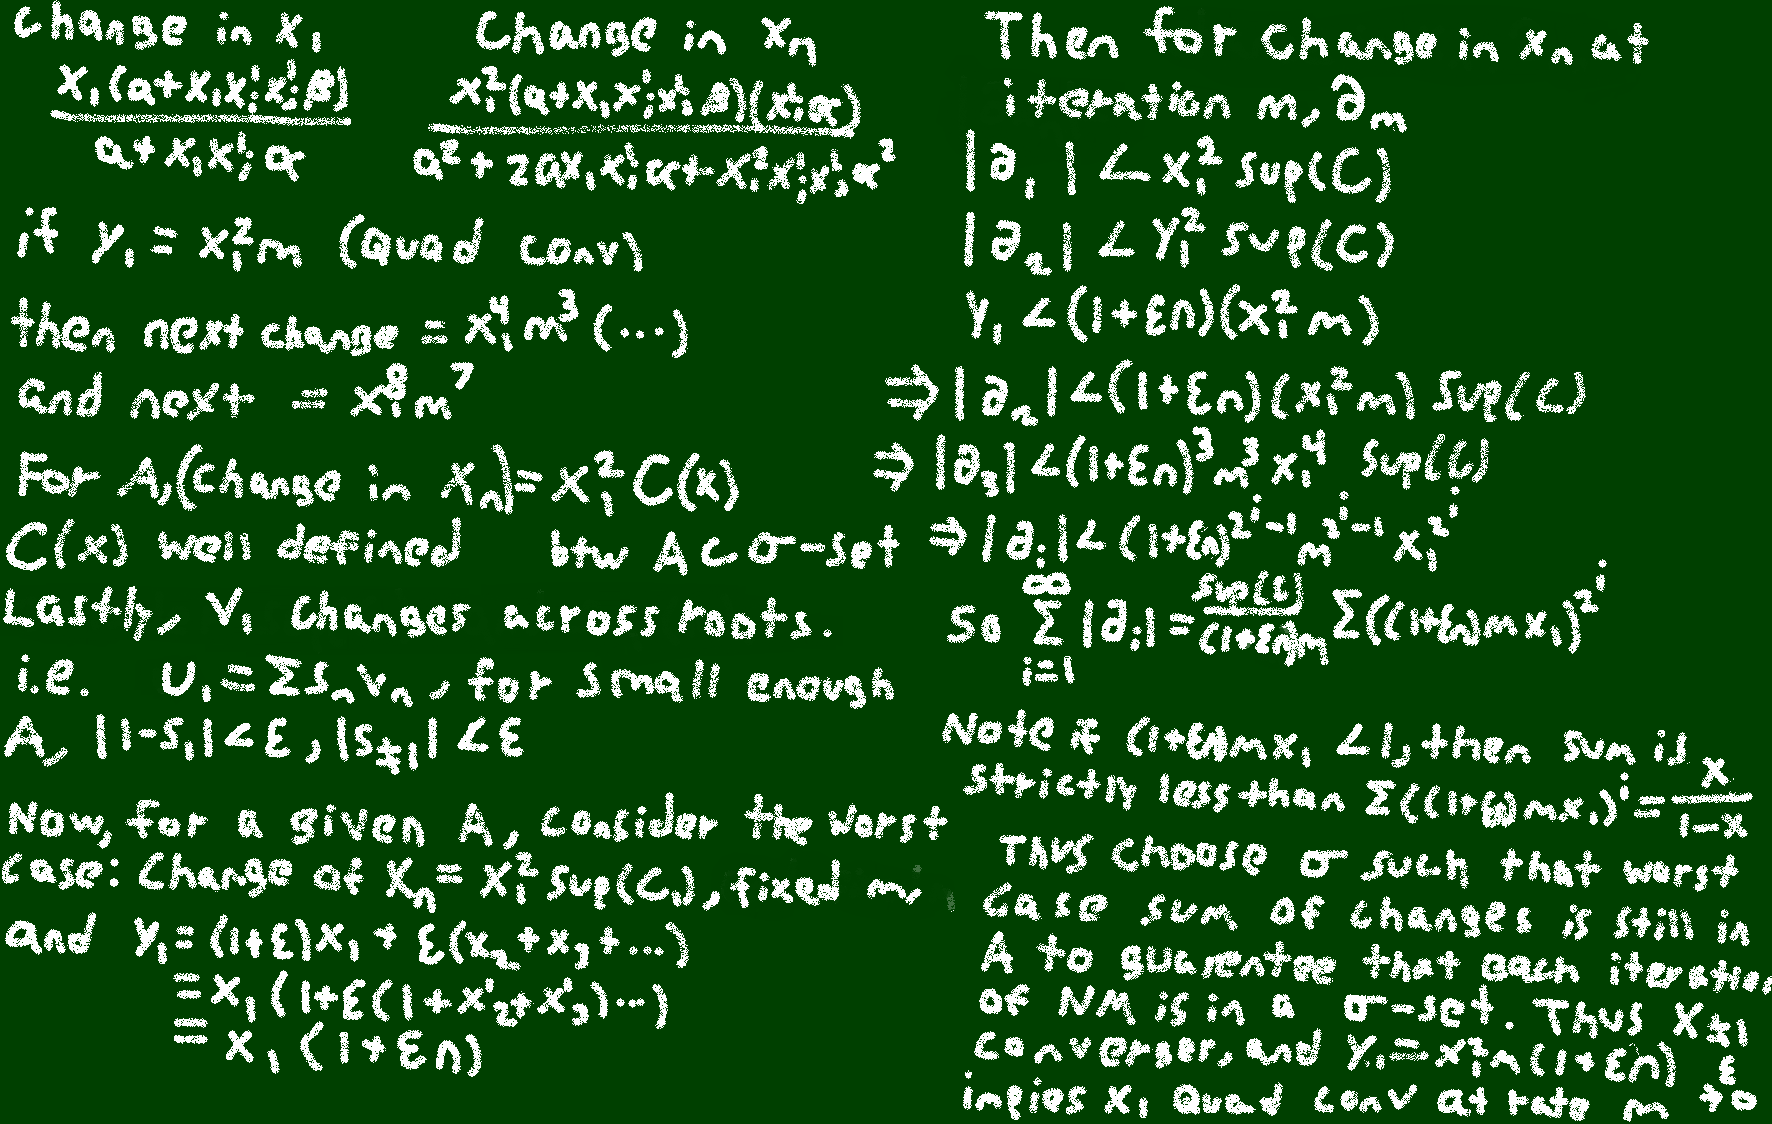 Change in x₁
x₁(a+x₁x'ᵢx'ⱼβ)
a+x₁x'ᵢα
Change in xₙ
x₁²(a+x₁x'ᵢx'ⱼβ)(x'ᵢα)
a²+2ax₁x'ᵢα+x₁²x'ᵢx'ⱼα²
if y₁ = x₁²m (Quad conv)
then next change = x₁⁴m³(...)
and next = x₁⁸m⁷
For A,(change in xₙ)=x₁²C(x)
C(x) well defined btw A⊂σ-set
Lastly, V₁ changes across roots.
i.e. U₁=Σsₙvₙ, for small enough
A, |1-s₁|<ε, |s≠₁|<ε
Now, for a given A, consider the worst
case: Change of Xₙ= x₁²sup(C), fixed m,
and y₁=(1+ε)x₁+ε(x₂+x₃+...)
=x₁(1+ε(1+x'₂+x'₃)...)
=x₁(1+εn)
Then for change in xₙ at
iteration m, ∂ₘ
|∂₁|<x₁²sup(C)
|∂₂|<y₁²sup(C)
y₁<(1+εn)(x₁²m)
⇒|∂₂|<(1+εn)(x₁²m)sup(C)
⇒|∂₃|<(1+εn)³m³x₁⁴ sup(C)
⇒|∂ᵢ|<(1+εn)^{2^i-1}m^{2^i-1}x₁^{2^i}
So ∞Σi=1 |∂ᵢ|= sup(C)/(1+εn)m Σ((1+εn)mx₁)^{2^i}
Note if (1+εn)mx₁ <1, then sum is
strictly less than Σ((1+εn)mx₁)^i = x/1-x
Thus choose σ such that worst
case sum of changes is still in
A to guarentee that each iteration
of NM is in a σ-set. Thus X≠1
converges, and y₁=x₁²m(1+εn)
ε→0
impies x₁ Quad conv at rate m